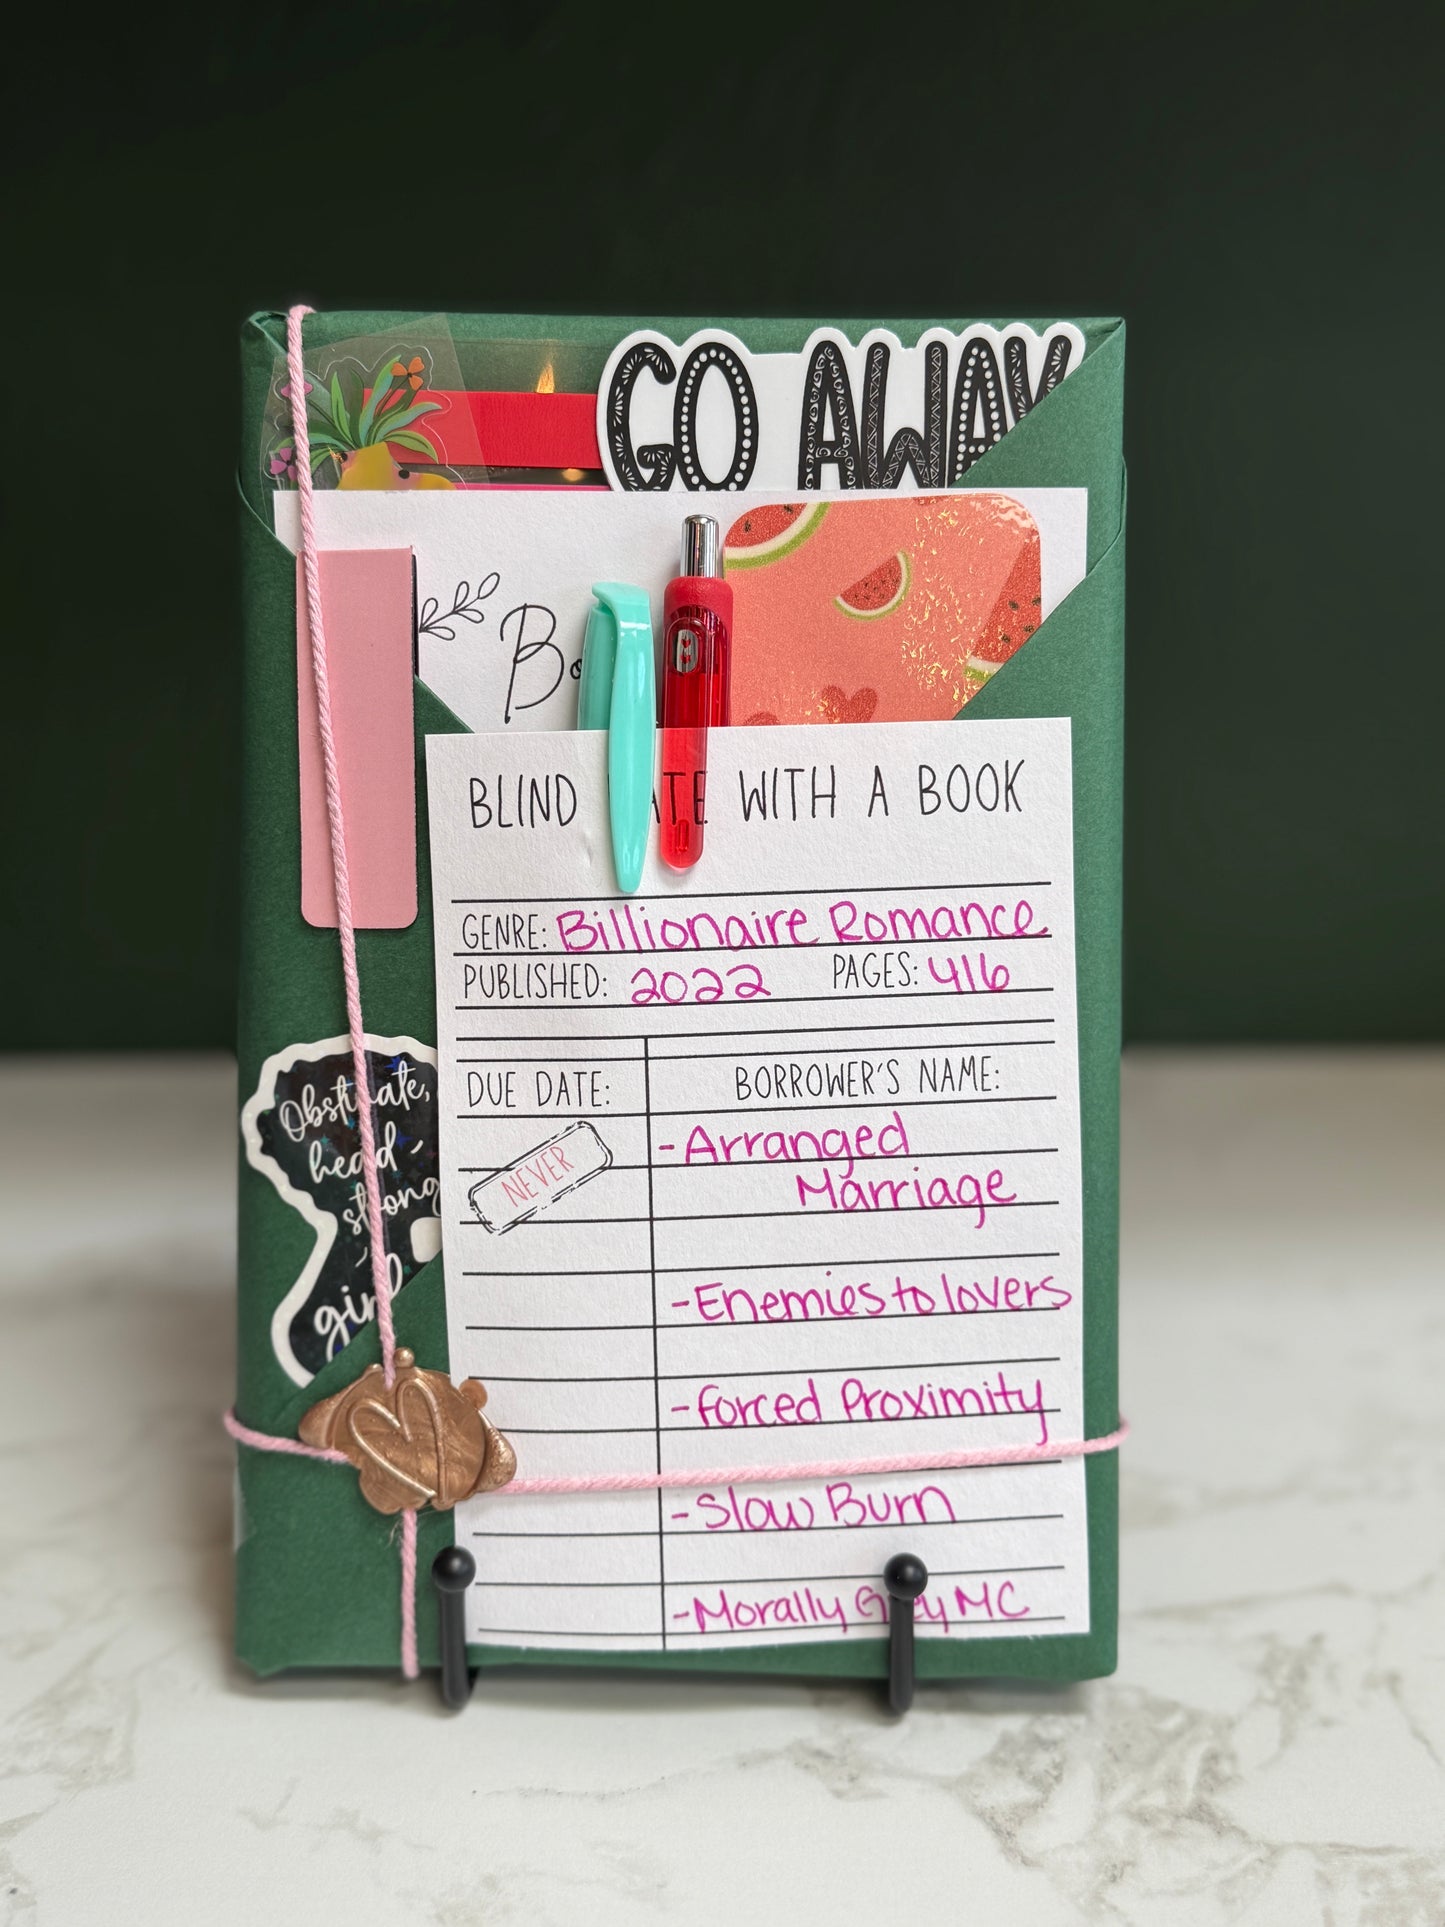 GO AWAY
BLIND DATE WITH A BOOK
GENRE: Billionaire Romance
PUBLISHED: 2022 PAGES: 416
DUE DATE: BORROWER'S NAME:
NEVER
-Arranged
Marriage
-Enemies to lovers
-Forced Proximity
-Slow Burn
-Morally Grey MC
Obstinate,
head-
strong
girl